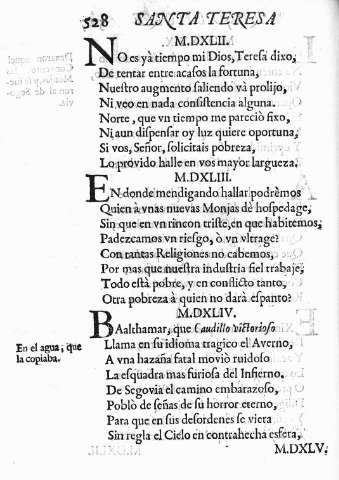 528 SANTA TERESA
M.DXLII.
NO es yà tiempo mi Dios, Teresa dixo,
De tentar entre acasos la fortuna,
Nuestro augmento saliendo và prolijo,
Ni veo en nada consistencia alguna.
Norte, que vn tiempo me pareciò fixo,
Ni aun dispensar oy luz quiere oportuna,
Si vos, Señor, solicitais pobreza,
Lo pròvido halle en vos mayor largueza.
M.DXLIII.
EN donde mendigando hallar podrèmos
Quien à vnas nuevas Monjas dè hospedage,
Sin que en vn rincon triste, en que habitemos,
Padezcamos vn riesgo, ò vn vltrage?
Con tantas Religiones no cabemos,
Por mas que nuestra industria fiel trabaje,
Todo està pobre, y en conflicto tanto,
Otra pobreza à quien no darà espanto?
M.DXLIV.
BAalthamar, que Caudillo victorioso
En el agua, que
la copiaba.
Llama en su idioma tragico el Averno,
A vna hazaña fatal moviò ruidoso
La esquadra mas furiosa del Infierno.
De Segovia el camino embarazoso,
Poblò de señas de su horror eterno,
Para que en sus desordenes se viera
Sin regla el Cielo en contrahecha esfera,
M.DXLV.